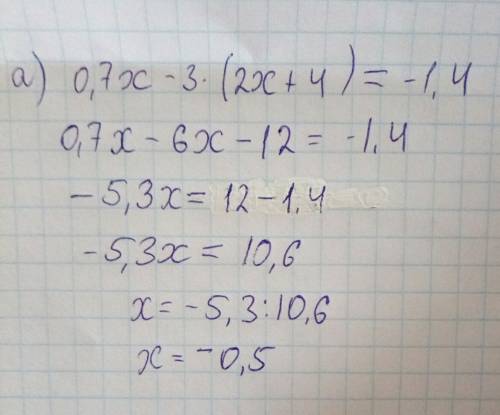 а) 0,7x - 3 · (2x + 4) = -1,4
0,7x - 6x - 12 = -1,4
- 5,3x = 12 - 1,4
- 5,3x = 10,6
x = - 5,3 : 10,6
x = -0,5